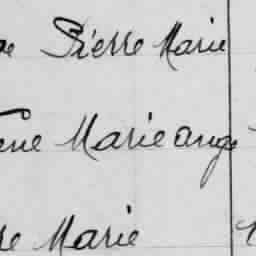 Pierre Marie
ène Marieange
re Marie